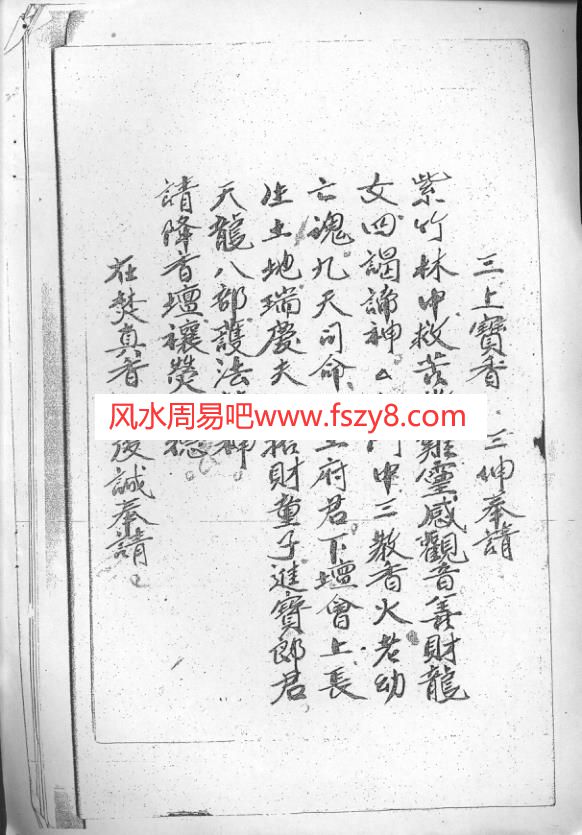 三上寶香 三伸奉請
紫竹林中救苦 難靈感觀音善財龍
女四謁諦神 門中三教香火老幼
亡魂九天司命 王府君下壇會上長
生土地瑞慶夫 招財童子進寶郎君
天龍八部護法 神
請降香壇禳熒 德
在焚真香 後誠奉請
风水周易吧www.fszy8.com